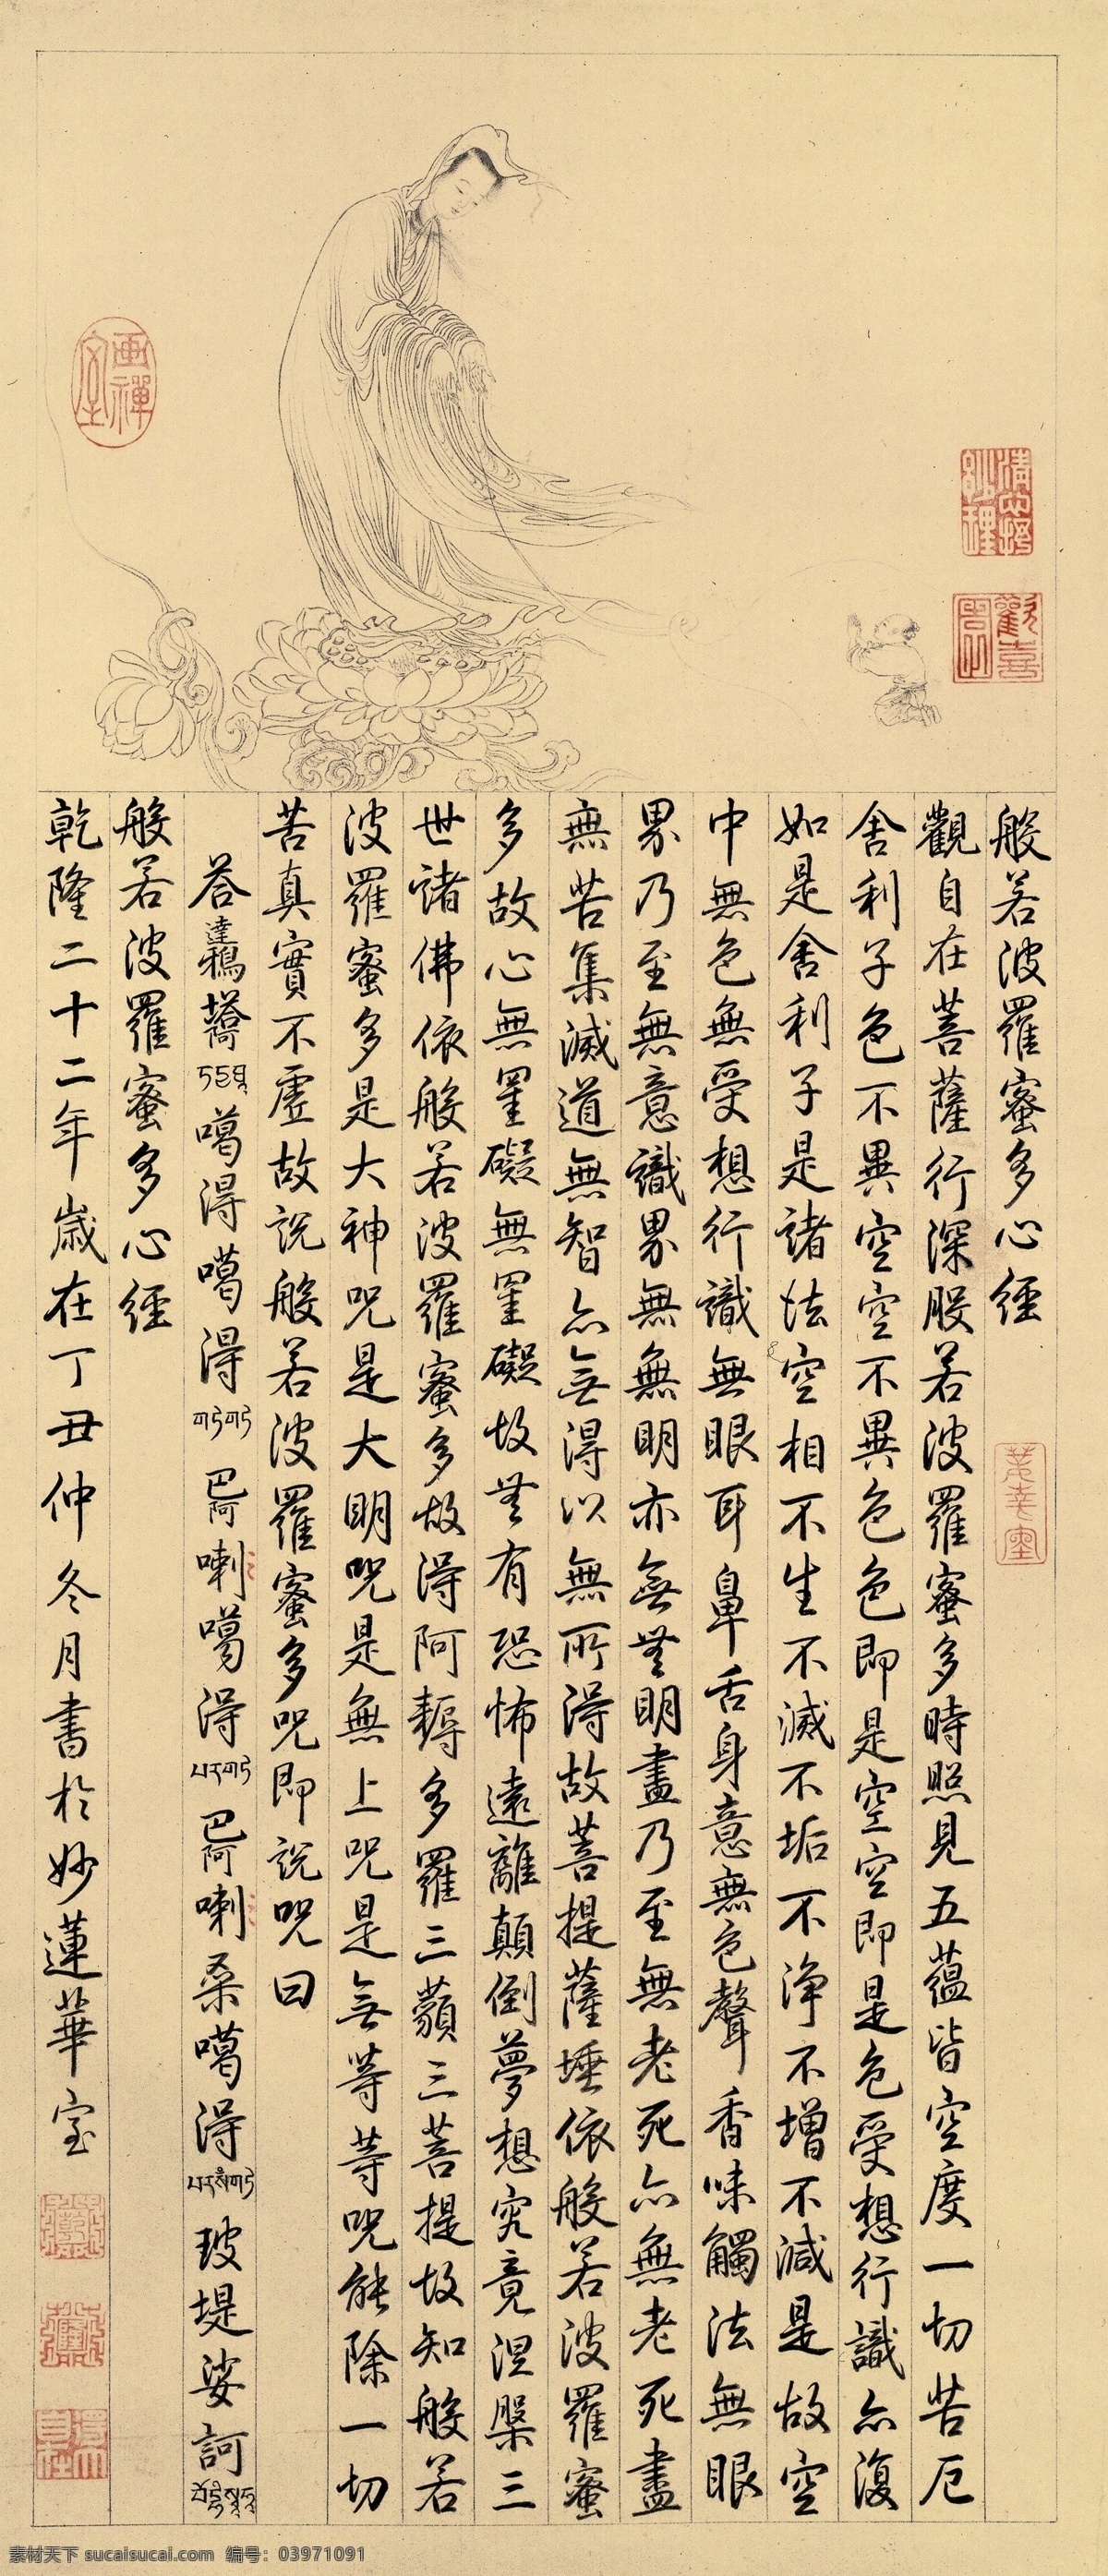 般若波羅蜜多心經
觀自在菩薩行深般若波羅蜜多時照見五蘊皆空度一切苦厄
舍利子色不異空空不異色色即是空空即是色受想行識亦復
如是舍利子是諸法空相不生不滅不垢不淨不增不減是故空
中無色無受想行識無眼耳鼻舌身意無色聲香味觸法無眼
界乃至無意識界無無明亦無無明盡乃至無老死亦無老死盡
無苦集滅道無智亦無得以無所得故菩提薩埵依般若波羅蜜
多故心無罣礙無罣礙故無有恐怖遠離顛倒夢想究竟涅槃三
世諸佛依般若波羅蜜多故得阿耨多羅三藐三菩提故知般若
波羅蜜多是大神咒是大明咒是無上咒是無等等咒能除一切
苦真實不虛故說般若波羅蜜多咒即說咒曰
答達鴉噶得噶得གཏེགཏེ巴阿喇噶得པརགཏེ巴阿喇桑噶得པརསཾགཏེ玻堤娑訶
般若波羅蜜多心經
乾隆二十二年歲在丁丑仲冬月書於妙蓮華室
畫禪室
素材天下 sucaisucai.com 编号：03971091